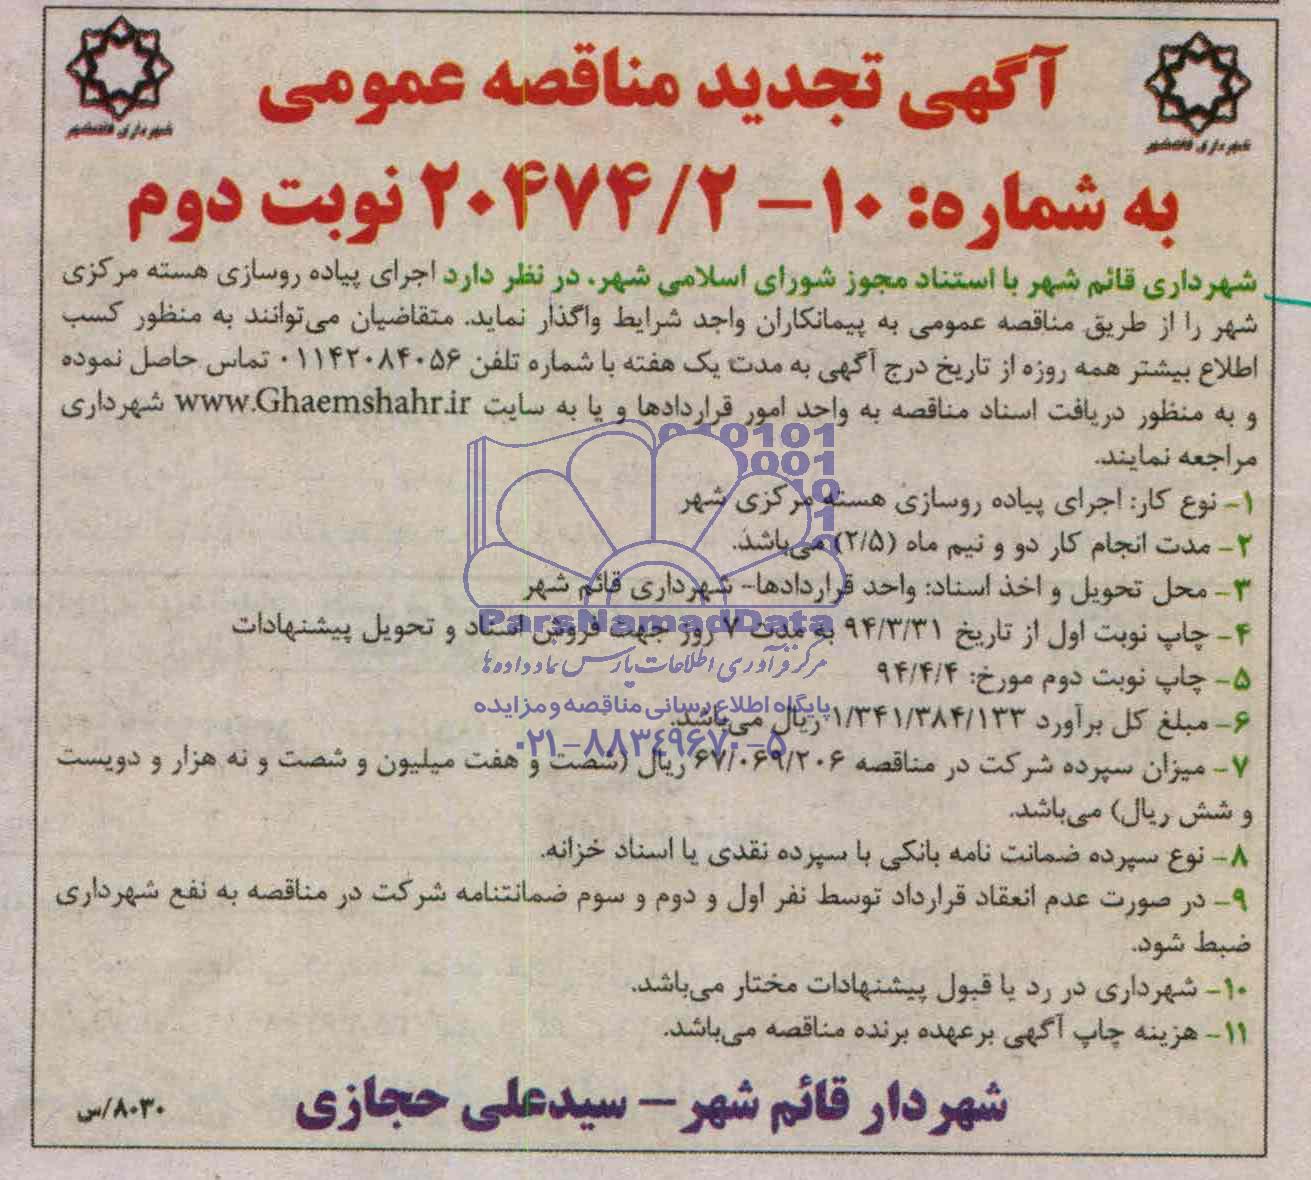 آگهی تجدید مناقصه عمومی
شهرداری قائمشهر
شهرداری قائمشهر
به شماره: ۱۰- ۲۰۴۷۴/۲ نوبت دوم
شهرداری قائم شهر با استناد مجوز شورای اسلامی شهر، در نظر دارد اجرای پیاده روسازی هسته مرکزی
شهر را از طریق مناقصه عمومی به پیمانکاران واجد شرایط واگذار نماید. متقاضیان می‌توانند به منظور کسب
اطلاع بیشتر همه روزه از تاریخ درج آگهی به مدت یک هفته با شماره تلفن ۰۱۱۴۲۰۸۴۰۵۶ تماس حاصل نموده
و به منظور دریافت اسناد مناقصه به واحد امور قراردادها و یا به سایت www.Ghaemshahr.ir شهرداری
مراجعه نمایند.
۱- نوع کار: اجرای پیاده روسازی هسته مرکزی شهر
۲- مدت انجام کار دو و نیم ماه (۲/۵) می‌باشد.
۳- محل تحویل و اخذ اسناد: واحد قراردادها- شهرداری قائم شهر
۴- چاپ نوبت اول از تاریخ ۹۴/۳/۳۱ به مدت ۷ روز جهت فروش اسناد و تحویل پیشنهادات
۵- چاپ نوبت دوم مورخ: ۹۴/۴/۴
۶- مبلغ کل برآورد ۱/۳۴۱/۳۸۴/۱۳۳ ریال می‌باشد.
۷- میزان سپرده شرکت در مناقصه ۶۷/۰۶۹/۲۰۶ ریال (شصت و هفت میلیون و شصت و نه هزار و دویست
و شش ریال) می‌باشد.
۸- نوع سپرده ضمانت نامه بانکی با سپرده نقدی یا اسناد خزانه.
۹- در صورت عدم انعقاد قرارداد توسط نفر اول و دوم و سوم ضمانتنامه شرکت در مناقصه به نفع شهرداری
ضبط شود.
۱۰- شهرداری در رد یا قبول پیشنهادات مختار می‌باشد.
۱۱- هزینه چاپ آگهی برعهده برنده مناقصه می‌باشد.
شهردار قائم شهر- سیدعلی حجازی
۸۰۳۰/س
ParsNamadData
مرکز فرآوری اطلاعات پارس نماد داده‌ها
پایگاه اطلاع رسانی مناقصه و مزایده
۰۲۱-۸۸۳۴۹۶۷۰-۵